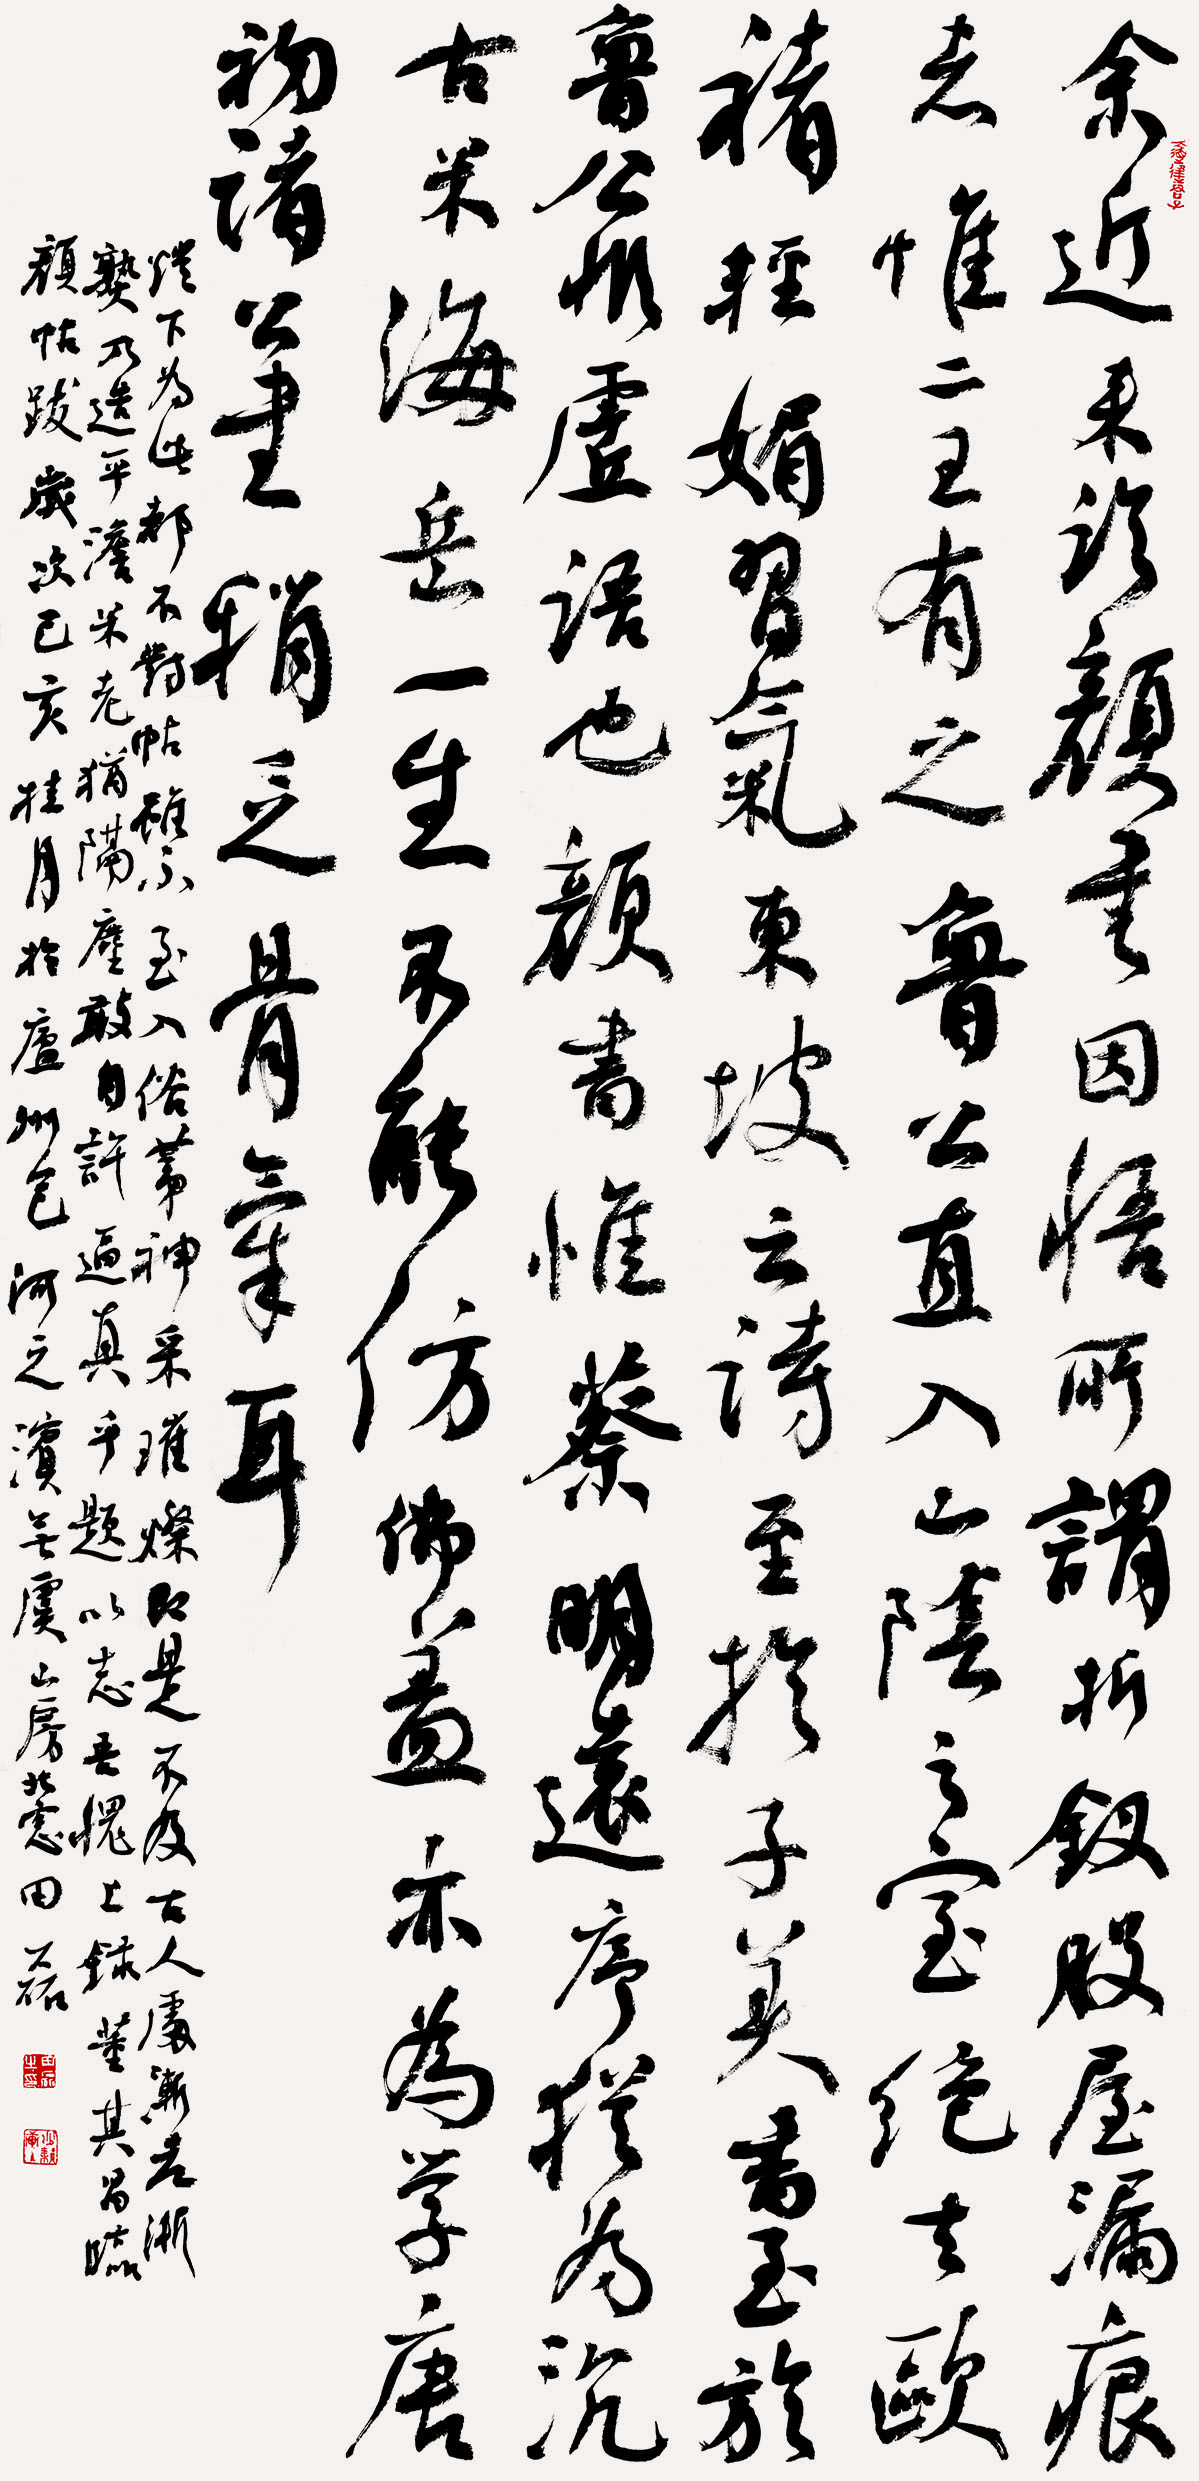 余近来临颜书因悟所謂折釵股屋漏痕
者惟二王有之魯公直入山陰之室绝去歐
褚輕媚習氣東坡云詩至於子美書至於
魯公非虛語也顏書惟蔡明遠序猶為沉
古米海岳一生不能仿佛盖亦為学唐
初諸公書稍乏骨氣耳
燈下為此都不對帖雖不至入俗第神采璀燦即是不及古人處漸老漸
熟乃造平澹米老猶隔塵敢自許逼真乎題以志吾愧上録董其昌臨
顏帖跋歲次己亥桂月於廬州包河之濱无虞山房北窓田磊